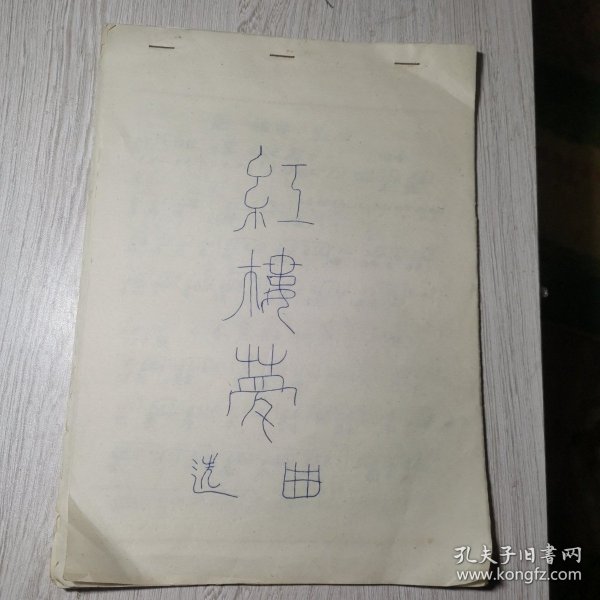 紅
樓
夢
选曲
孔夫子旧书网
www.kongfz.com